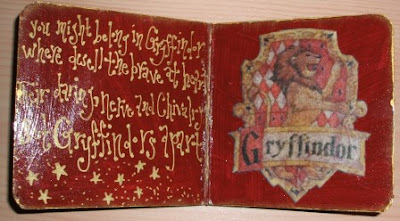 you might belong in Gryffindor
where dwell the brave at heart
Their daring, Nerve and Chivalry
Set Gryffindors apart
Gryffindor